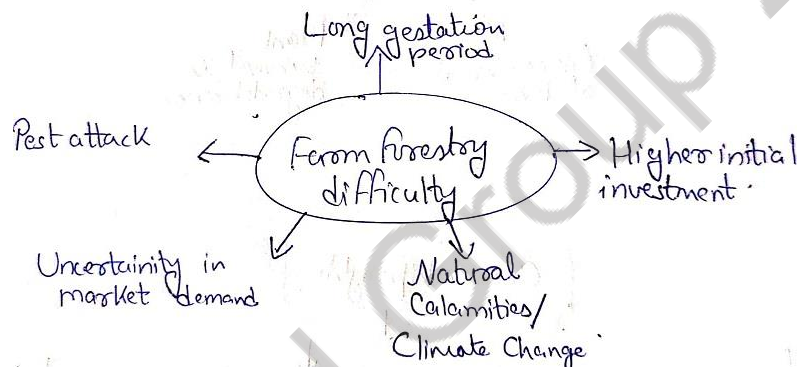 Long gestation
period
Pest attack
Farm forestry
difficulty
Higher initial
investment.
Uncertainity in
market demand
Natural
Calamities/
Climate Change
Group